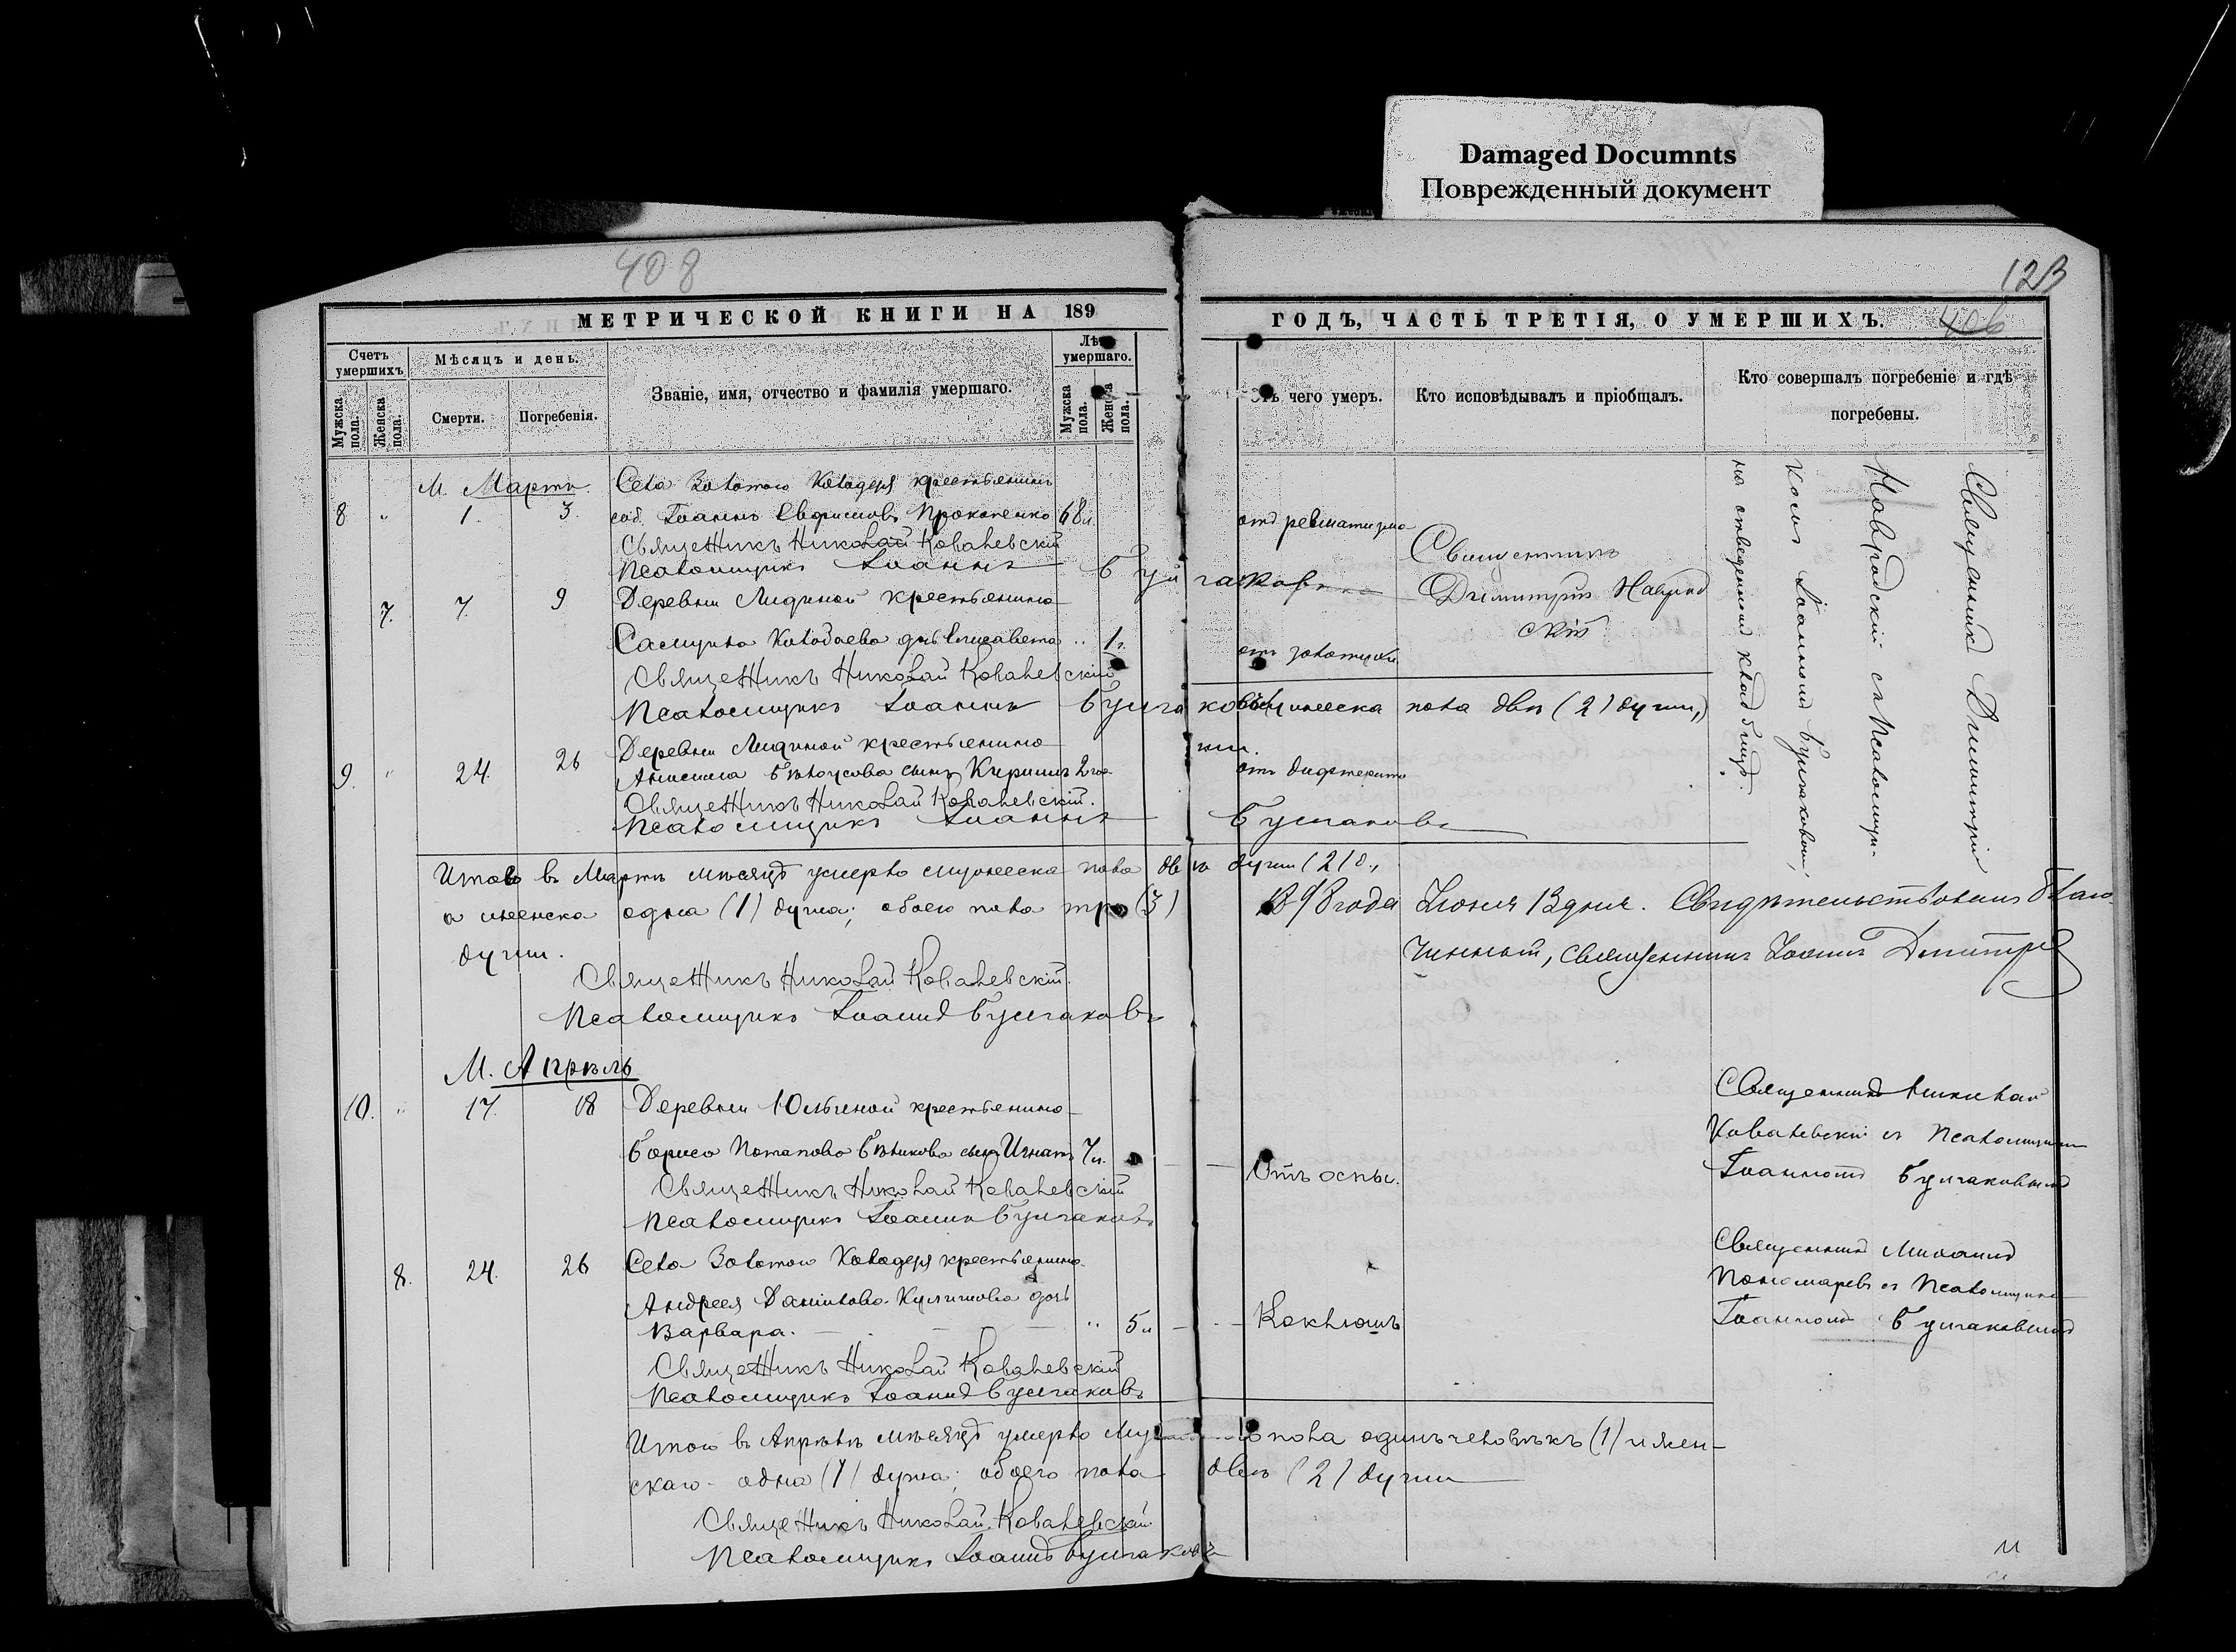 Damaged Documnts
Поврежденный документ
408
123
406
МЕТРИЧЕСКОЙ КНИГИ НА 189
ГОДЪ, ЧАСТЬ ТРЕТІЯ, О УМЕРШИХЪ.
Счетъ умершихъ
Мужска пола.
Женска пола.
Мѣсяцъ и день.
Смерти.
Погребенія.
Званіе, имя, отчество и фамилія умершаго.
умершаго.
Мужска пола.
пола.
чего умеръ.
Кто исповѣдывалъ и пріобщалъ.
Кто совершалъ погребеніе и гдѣ погребены.
М. Мартъ.
Села Золотого Колодезя крестьянинъ
8 " 1. 3. Іоаннъ Прокопенко 68 л.
отъ ревматизма
Священникъ Николай Ковалевскій
Псаломщикъ Іоаннъ Булгаковъ
Священникъ
Димитрій Навродскій
7. 7. 9 Деревни Лидиной крестьянина
дочь Елисавета " 1 г.
отъ золотухи
Священникъ Николай Ковалевскій
Псаломщикъ Іоаннъ Булгаковъ
пола двѣ (2) души,
Деревни Лидиной крестьянина
9. " 24. 26 Бѣлоусова сынъ 2 год.
отъ дифтерита
Священникъ Николай Ковалевскій.
Псаломщикъ Іоаннъ Булгаковъ
Священникъ Димитрій
Навродскій съ псаломщи-
комъ Іоанномъ Булгаковымъ,
на отведенномъ кладбищѣ.
Итого въ Мартѣ мѣсяцѣ умерло мужеска пола двѣ души (2) д.,
а женска одна (1) душа; обоего пола три (3)
душ.
Священникъ Николай Ковалевскій.
Псаломщикъ Іоаннъ Булгаковъ
1898 года Іюня 13 дня. Свидѣтельствовалъ Благо-
чинный, священникъ Іоаннъ
М. Апрѣль
10. " 17. 18 Деревни Юльиной крестьянина
Бориса Потапова Бѣликова сынъ Игнатъ 7 л.
Отъ оспы.
Священникъ Николай Ковалевскій
Псаломщикъ Іоаннъ Булгаковъ
Священникъ Николай
Ковалевскій съ псаломщикомъ
Іоанномъ Булгаковымъ
8. 24. 26 Села Золотого Колодезя крестьянина
Андрея Данилова дочь
Варвара. " 5 л.
Коклюшъ
Священникъ Николай Ковалевскій
Псаломщикъ Іоаннъ Булгаковъ
Священникъ Михаилъ
Пономаревъ съ псаломщикомъ
Іоанномъ Булгаковымъ
Итого въ Апрѣлѣ мѣсяцѣ умерло пола одинъ человѣкъ (1) и жен-
скаго одна (1) душа; обоего пола двѣ (2) души
Священникъ Николай Ковалевскій
Псаломщикъ Іоаннъ Булгаковъ